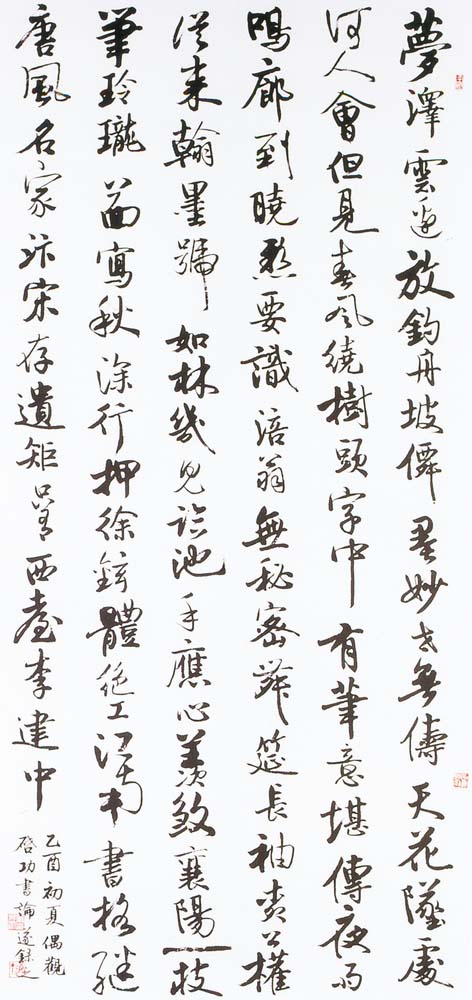 夢澤雲邊放釣舟坡僊墨妙世無儔天花墜處
何人會但見春風繞樹頭字中有筆意堪傳夜雨
鳴廊到曉懸要識涪翁無秘密舞筵長袖柳公權
從來翰墨號如林幾見臨池手應心羨煞襄陽一枝
筆玲瓏八面寫秋深行押徐鉉體絕工江南書格繼
唐風名家汴宋存遺矩只有西臺李建中
乙酉初夏偶觀
啓功書論遂錄之